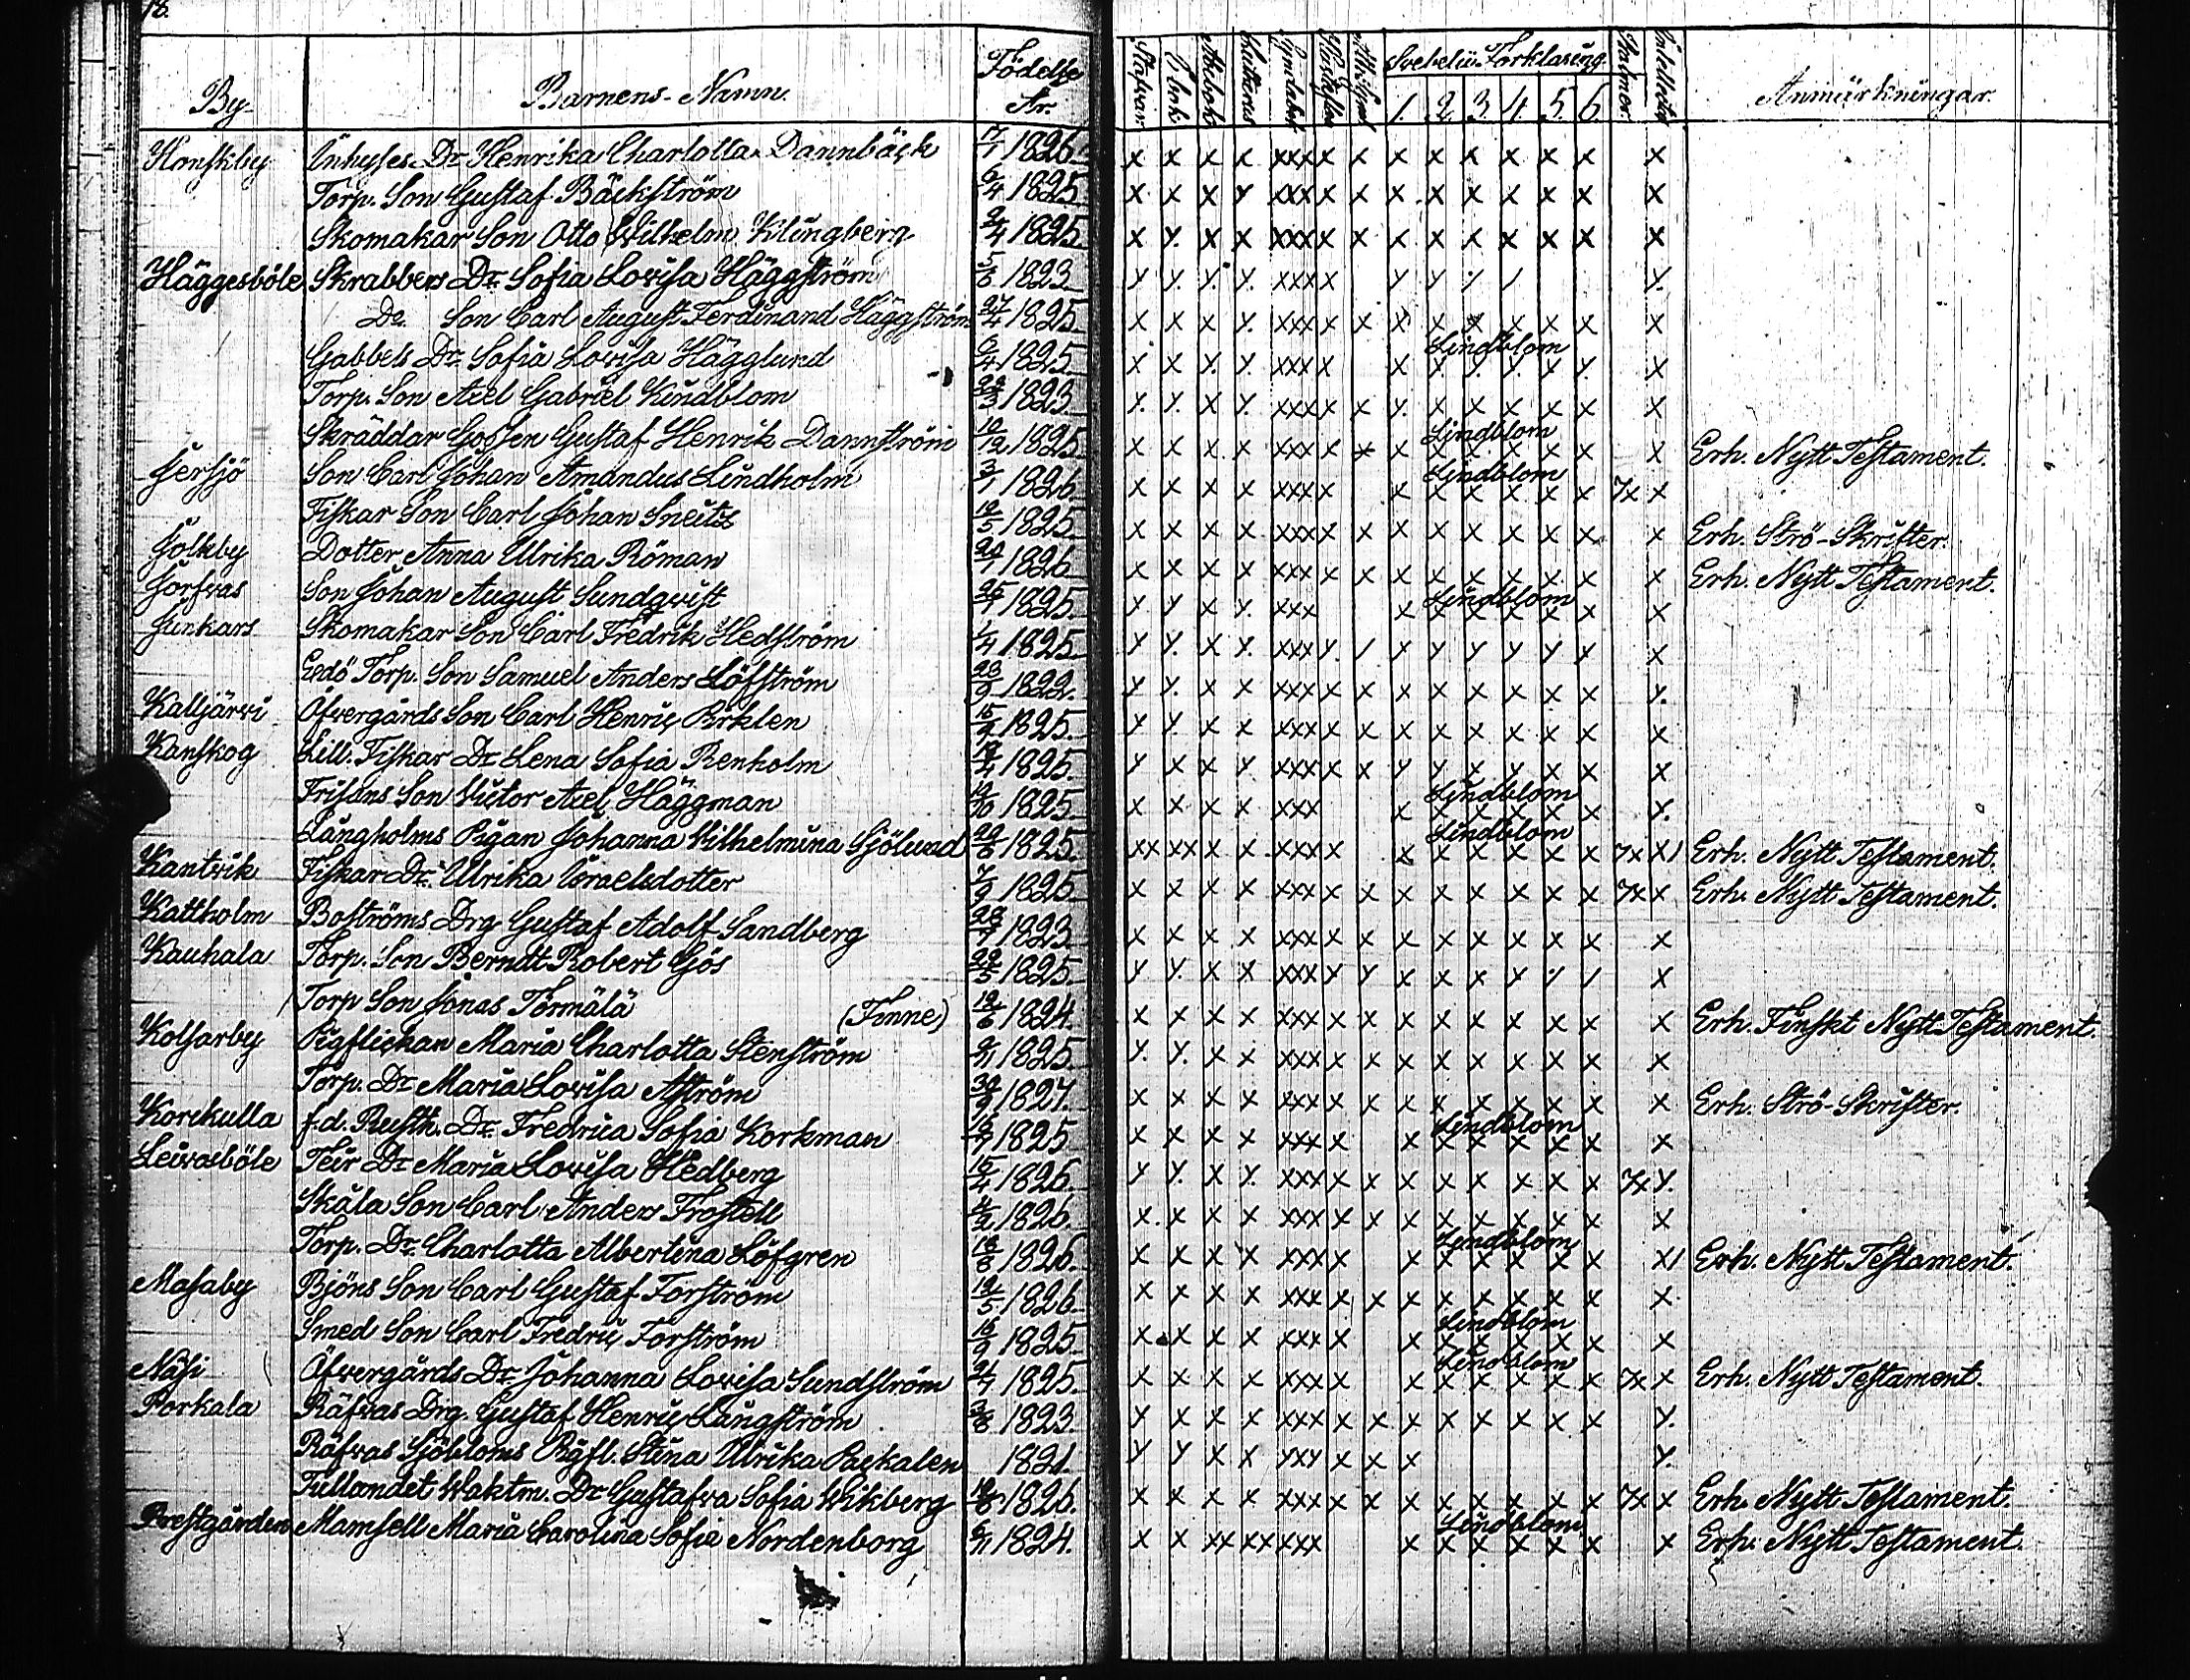 18.
By- Barnens-Namn. Födelse År. Stafvar. I bok Abcbok Lutheri Symbolet Hustaflan Ath:Symb Svebelii Förklaring. Psalmer. Intellectus Anmärkningar.
1. 2. 3. 4. 5. 6.
Honskby Inhyses Dr Henrika Charlotta Dannbäck 17/7 1826. x x x x xxx x x x x x x x x x
Torp. Son Gustaf Bäckström 6/4 1825 x x x y xxx x x x x x x x x x
Skomakar Son Otto Wilhelm Klingberg 2/4 1825. x y. x x xxx x x x x x x x x x
Häggesböle Skrabbers Dr. Sofia Lovisa Häggström 5/8 1823 y y. y. y. xxx x y y y / y.
Do Son Carl August Ferdinand Häggström 27/4 1825 x x x y. xxx x x x x x x x x x
Gabbels Dr. Sofia Lovisa Hägglund 6/4 1825. x x y. y. xxx x x x y. y. x y. x Lindblom
Torp. Son Axel Gabriel Kindblom 22/3 1823 y. y. x y. xxx x x y. x x x x x x
Skräddar Gossen Gustaf Henrik Dannström 10/12 1825 x x x x xxx x x x x x x x x x Lindblom Erh. Nytt Testament.
Jersjö Son Carl Johan Amandus Lindholm 3/1 1826 x x x x xxx x x x x x x x 7x x Lindblom
Fiskar Son Carl Johan Sneitz 12/5 1825 x x x x xxx x x x x x x x x x Erh. Strö-Skrifter.
Jolkby Dotter Anna Ulrika Röman 1826 x x x x xxx x x x x x x x x x Erh. Nytt Testament.
Jorfvas Son Johan August Sundqvist 25/7 1825. y y x y. xxx x x x x x x x Lindblom
Junkars Skomakar Son Carl Fredrik Hedström 1/4 1825 y y. x y. xxx y. / y y y y y y x
Esdö Torp. Son Samuel Anders Löfström 23/9 1822. y y. x x xxx x x x x x x x x y.
Kalljärvi Öfvergårds Son Carl Henric Birklen 15/9 1825. y y. x x xxx x x x x x x x x x
Kanskog Lill. Fiskar Dr Lena Sofia Renholm 19/4 1825. y x x y. xxx x x y y x y x x x
Frisans Son Victor Axel Häggman 12/10 1825 x x x x xxx x x x x x x y. Lindblom
Långholms Pigan Johanna Wilhelmina Sjölund 29/8 1825. xx xx x x xxx x x x x x x x 7x x/ Lindblom Erh. Nytt Testament.
Kantvik Fiskar Dr. Ulrika Israelsdotter 7/9 1825 x x x x xxx x x x x x x x x 7x x Erh. Nytt Testament.
Kattholm Boströms Drg Gustaf Adolf Sandberg 28/7 1823 x x x x xxx x x x x x x x x x
Kauhala Torp. Son Berndt Robert Gös 22/5 1825. y y. x x xxx y y x x x y y / x
Torp Son Jonas Tormälä (Finne) 12/6 1824. x x x x xxx x x x x x x x x x Erh. Finskt Nytt Testament.
Kolsarby Pigflickan Maria Charlotta Stenström 2/11 1825. y. y. x x xxx x x x x x x x x x
Torp. Dr Maria Lovisa Aström 30/9 1827. x x x x xxx x x x x x x x x x Erh. Strö-Skrifter.
Korikulla f.d. Rusth. Dr. Fredrica Sofia Korkman 16/7 1825 x x x x xxx x x x x x x x x Lindblom
Leivosböle Teir Dr Maria Lovisa Hedberg 15/4 1826. y y. x y. xxx x x x x x x x x 7x y.
Skåla Son Carl Anders Frostell 4/2 1826. x. x x x xxx x x x x x x x x x
Torp. Dr. Charlotta Albertina Löfgren 18/8 1826. x x x x xxx x x x x x x x x/ Lindblom Erh. Nytt Testament.
Masaby Björns Son Carl Gustaf Forström 12/5 1826 x x x x xxx x x x x x x x x x
Smed Son Carl Fredric Forström 16/9 1825. x x x x xxx x x x x x x x x Lindblom
Näsi Öfvergårds Dr. Johanna Lovisa Sundström 2/7 1825. x x x x xxx x x x x x x x 7x x Lindblom Erh. Nytt Testament.
Porkala Räfvas Drg. Gustaf Henric Långström 3/8 1823. y x x x xxx x x x x x x x x y.
Räfvas Sjöbloms Pigfl. Stina Ulrika Packalen 1821. y y x x yxy x x x y.
Tullandet Waktm. Dr Gustafva Sofia Wikberg 19/8 1826. x x x x xxx x x x x x x x x 7x x Erh. Nytt Testament.
Prestgården Mamsell Maria Carolina Sofia Nordenborg 6/11 1824. x x xx xx xxx x x x x x x x Lindblom Erh. Nytt Testament.